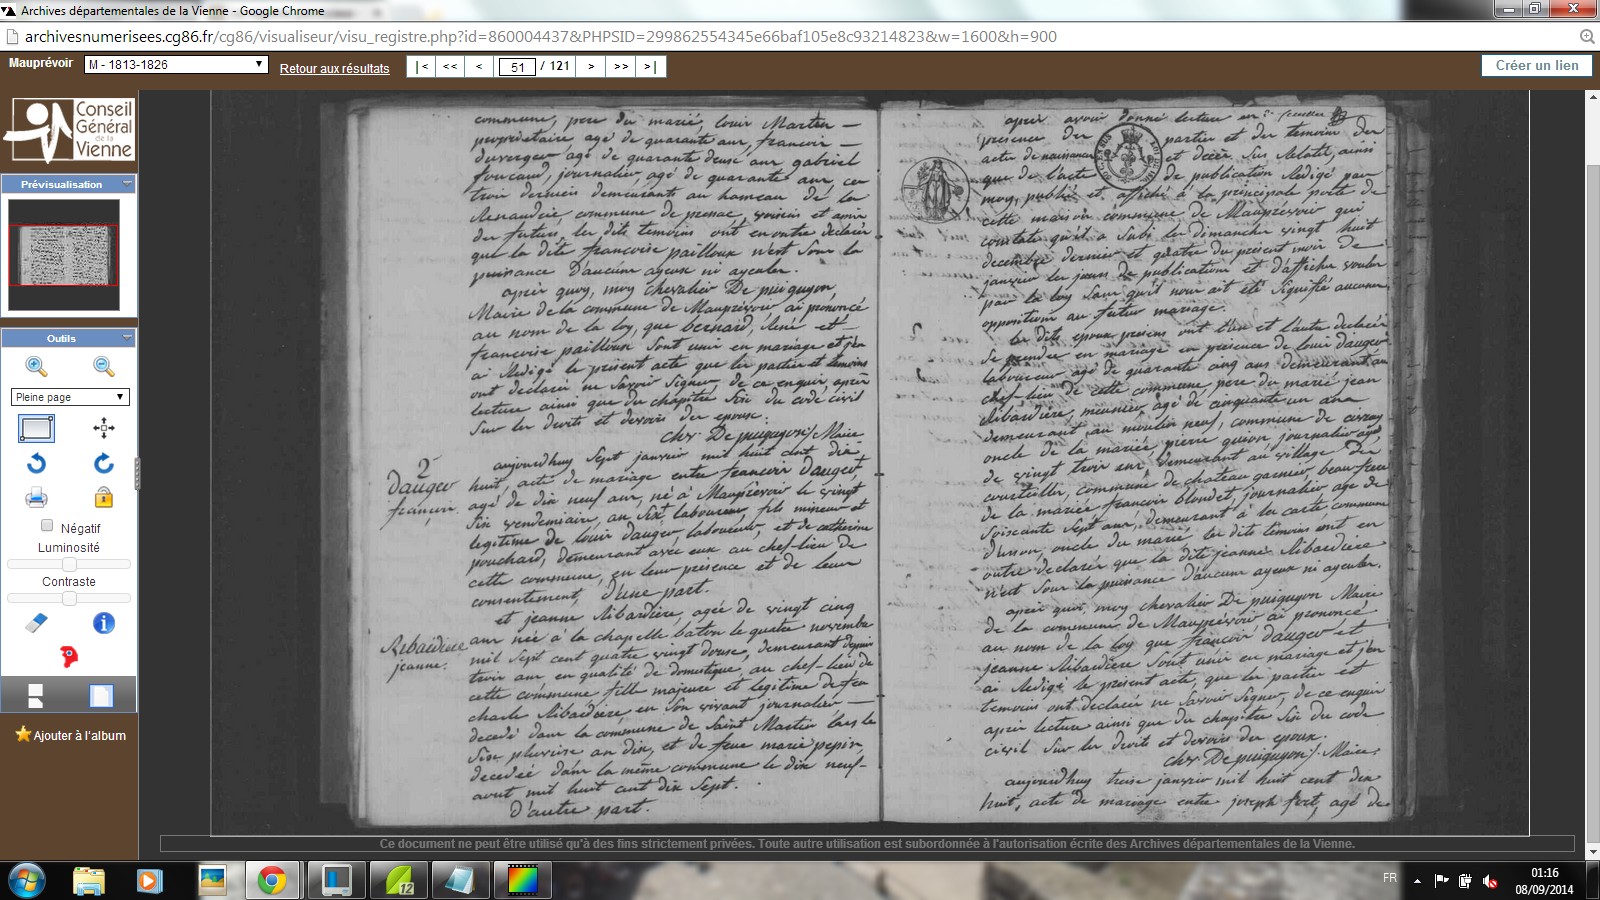 Archives départementales de la Vienne - Google Chrome
archivesnumerisees.cg86.fr/cg86/visualiseur/visu_registre.php?id=860004437&PHPSID=299862554345e66baf105e8c93214823&w=1600&h=900
Mauprévoir
M - 1813-1826
Retour aux résultats
|< << < 51 / 121 > >> >|
Créer un lien
Conseil
Général
de la
Vienne
Prévisualisation
Outils
Pleine page
Négatif
Luminosité
Contraste
Ajouter à l'album
commune, pere du marié, louis Martin
propriétaire, agé de quarante ans, francois
duverger, agé de quarante deux ans gabriel
foucaud, journalier, agé de quarante ans ces
trois derniers demeurants au hameau de la
Renaudrie commune de voisins et amis
des futurs, les dits temoins ont en outre declarer
que la dite francoise pailloux n'est sous la
puissance d'aucuns ayeux ni ayeules.
après quoy, moy chevalier De puiguyon
Maire de la commune de Mauprévoir ai prononcé
au nom de la loy, que bernard, René et
francoise pailloux sont unis en mariage et j'en
ai Redigé le présent acte que les parties et temoins
ont declaré ne Savoir Signer, de ce enquis après
lecture ainsi que du chapitre Six du code civil
Sur les droits et devoirs des epoux.
chev De puiguyon Maire
2
Daugev
françois
aujourdhuy Sept janvier mil huit cent dix
huit, acte de mariage entre francois Daugev
agé de dix neuf ans, né à Mauprévoir le vingt
Six vendemiaire, an Sixt laboureur, fils mineur et
legitime de louis Daugev, laboureur, et de catherine
pouchard, demeurant avec eux au chef-lieu de
cette commune, en leur presence et de leur
consentement, D'une part.
Ribardiere
jeanne.
et jeanne Ribardiere, agée de vingt cinq
ans née à la chapelle baton le quatre novembre
mil Sept cent quatre vingt douze, demeurant depuis
trois ans en qualité de domestique, au chef-lieu de
cette commune fille majeure et legitime de feu
charle Ribardiere en Son vivant journalier
decedé dans la commune de Saint Martin lars le
Six pluviose an dix, et de feue marie pepin
decedée dans la même commune le dix neuf
aout mil huit cent dix Sept.
D'autre part.
après avoir donné lecture en
presence des parties et des temoins des
actes de naissance et décès Sus Relaté, ainsi
que de l'acte de publication Redigé par
moy, publié et affiché à la principale porte de
cette maison commune de Mauprévoir qui
constate qu'il a Subi les dimanches vingt huit
decembre dernier et quatre du présent mois de
janvier les jours de publications et d'affiche voulus
par la loy Sans qu'il nous ait été Signifié aucune
opposition au futur mariage.
les dits epoux présens ont l'un et l'autre declarés
Se prendre en mariage en présence de louis daugev
laboureur agé de quarante cinq ans demeurant au
chef-lieu de cette commune, pere du marié jean
Ribardiere, meunier, agé de cinquante un ans
demeurant au moulin neuf, commune de civray
oncle de la mariée, pierre journalier agé
de vingt trois ans, demeurant au village des
commune de chateau garnier, beau-frere
de la mariée francois blondet, journalier agé de
Soixante Sept ans, demeurant à commune
oncle du marié les dits temoins ont en
outre declarés que la dite jeanne Ribardiere
n'est Sous la puissance d'aucuns ayeux ni ayeules.
après quoi, moy chevalier De puiguyon Maire
de la commune de Mauprévoir ai prononcé
au nom de la loy que francois daugev et
jeanne Ribardiere Sont unis en mariage et j'en
ai Redigé le présent acte, que les parties et
temoins ont declarés ne Savoir Signer, de ce enquis
après lecture ainsi que du chapitre Six du code
civil Sur les droits et devoirs des epoux.
chev De puiguyon Maire
aujourdhuy treize janvier mil huit cent dix
huit, acte de mariage entre joseph fort, agé de
Ce document ne peut être utilisé qu'à des fins strictement privées. Toute autre utilisation est subordonnée à l'autorisation écrite des Archives départementales de la Vienne.
12
FR
01:16
08/09/2014